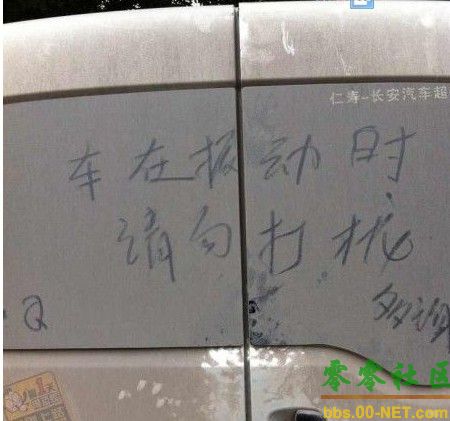 仁寿-长安汽车超
车在振动时
请勿打扰
Q
零零社区
bbs.00-NET.com